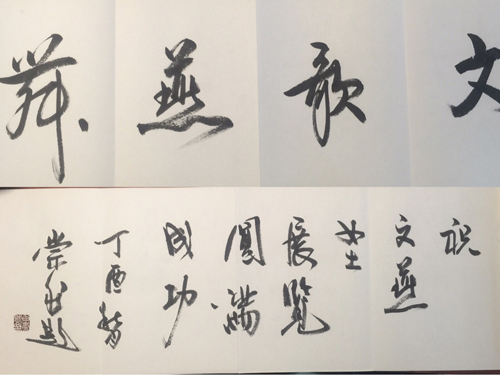 文歌燕舞
祝
文燕
女士
展覽
圓滿
成功
丁酉
題